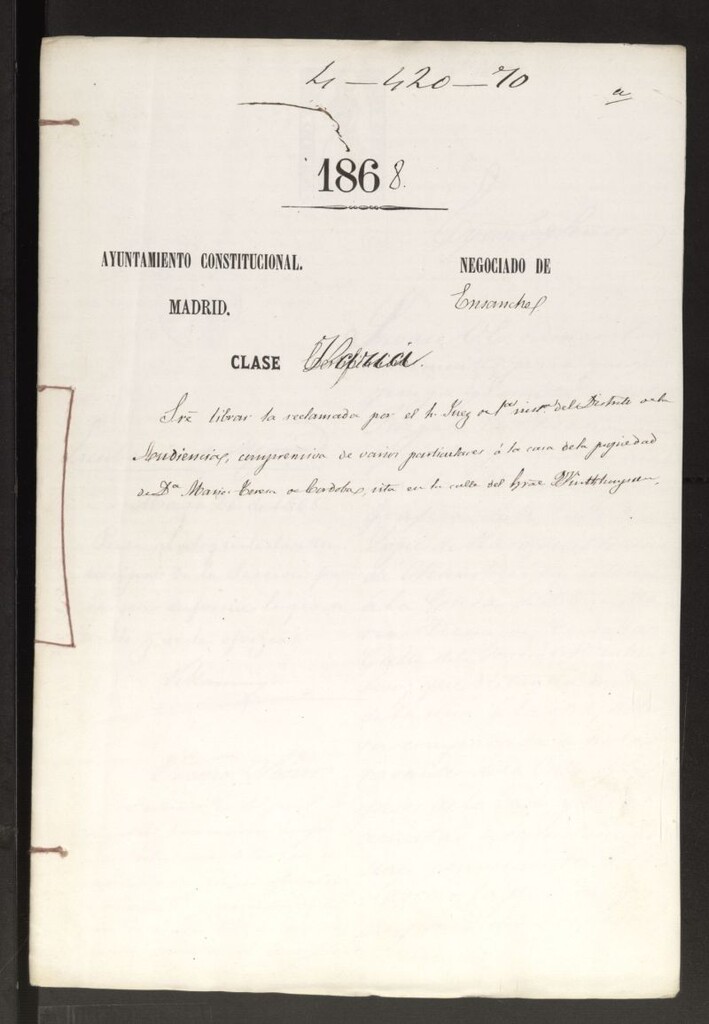 4-420-70
a
1868.
AYUNTAMIENTO CONSTITUCIONAL.
MADRID.
NEGOCIADO DE
Ensanche
CLASE
Sre librar la reclamada por el Sr. Juez de 1ª inst.ª del Distrito de la
Audiencia, comprensiva de varios particulares á la casa de la propiedad
de Dª Maria Teresa de Cordoba, sita en la calle del